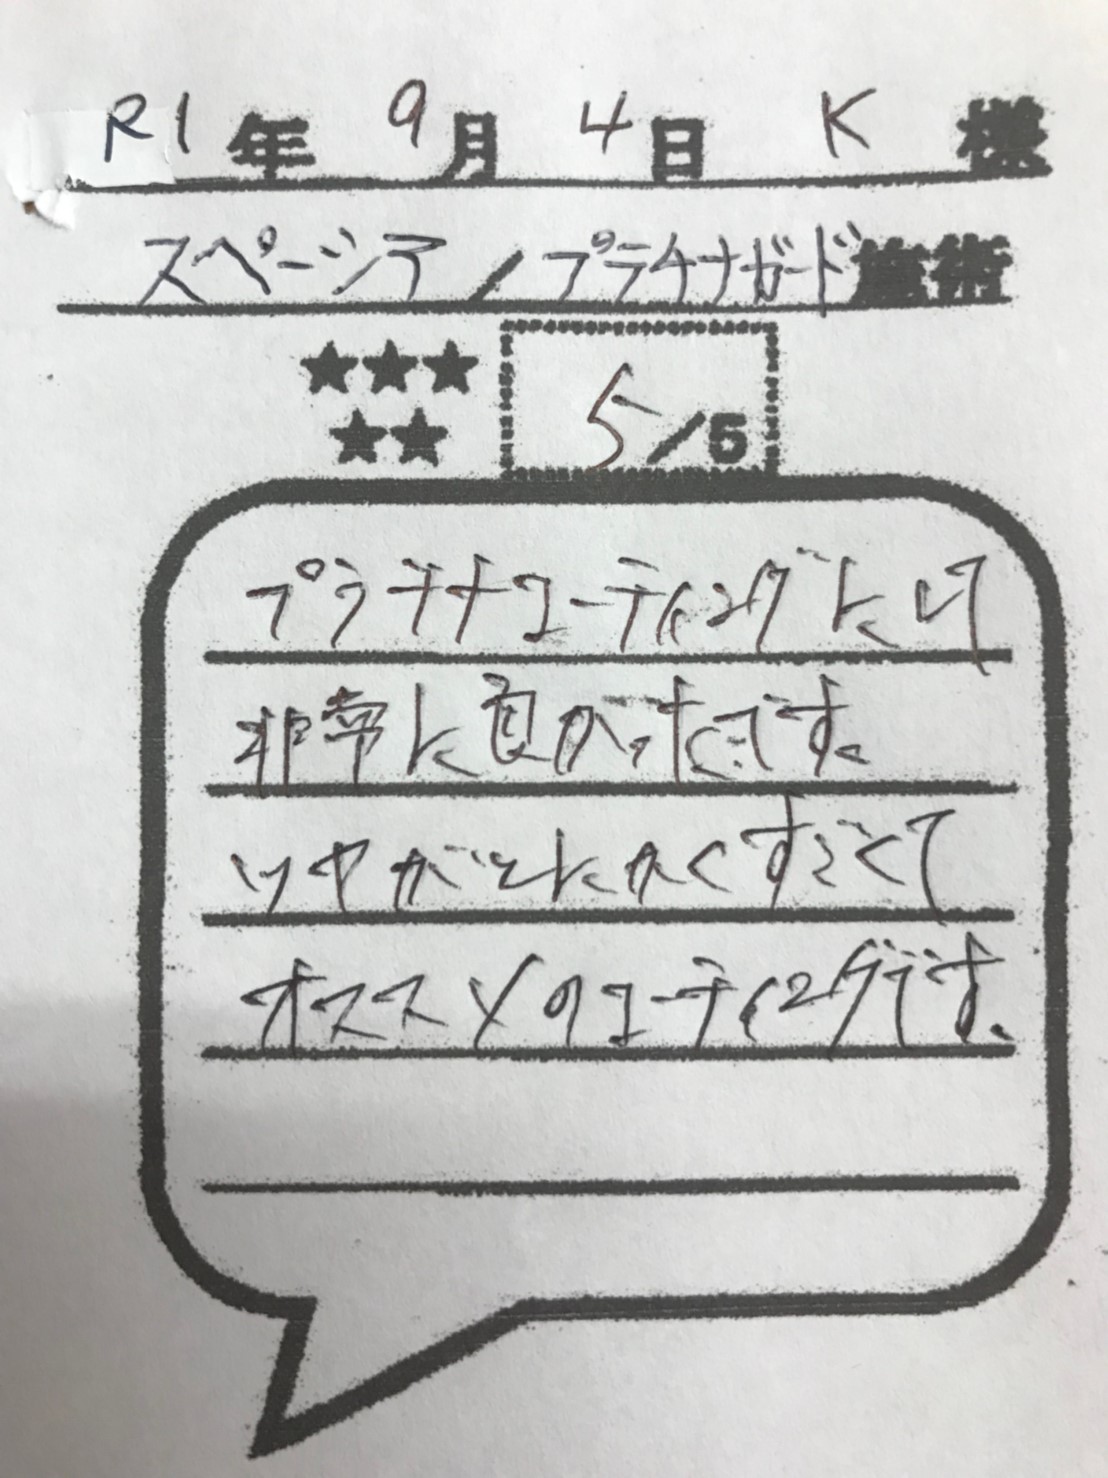 R1年 9月 4日 K 様
スペーシア/プラチナガード施術
★★★
★★
5/5
プラチナコーティングにして
非常に良かったです。
ツヤがとにかくすごくて
オススメのコーティングです。